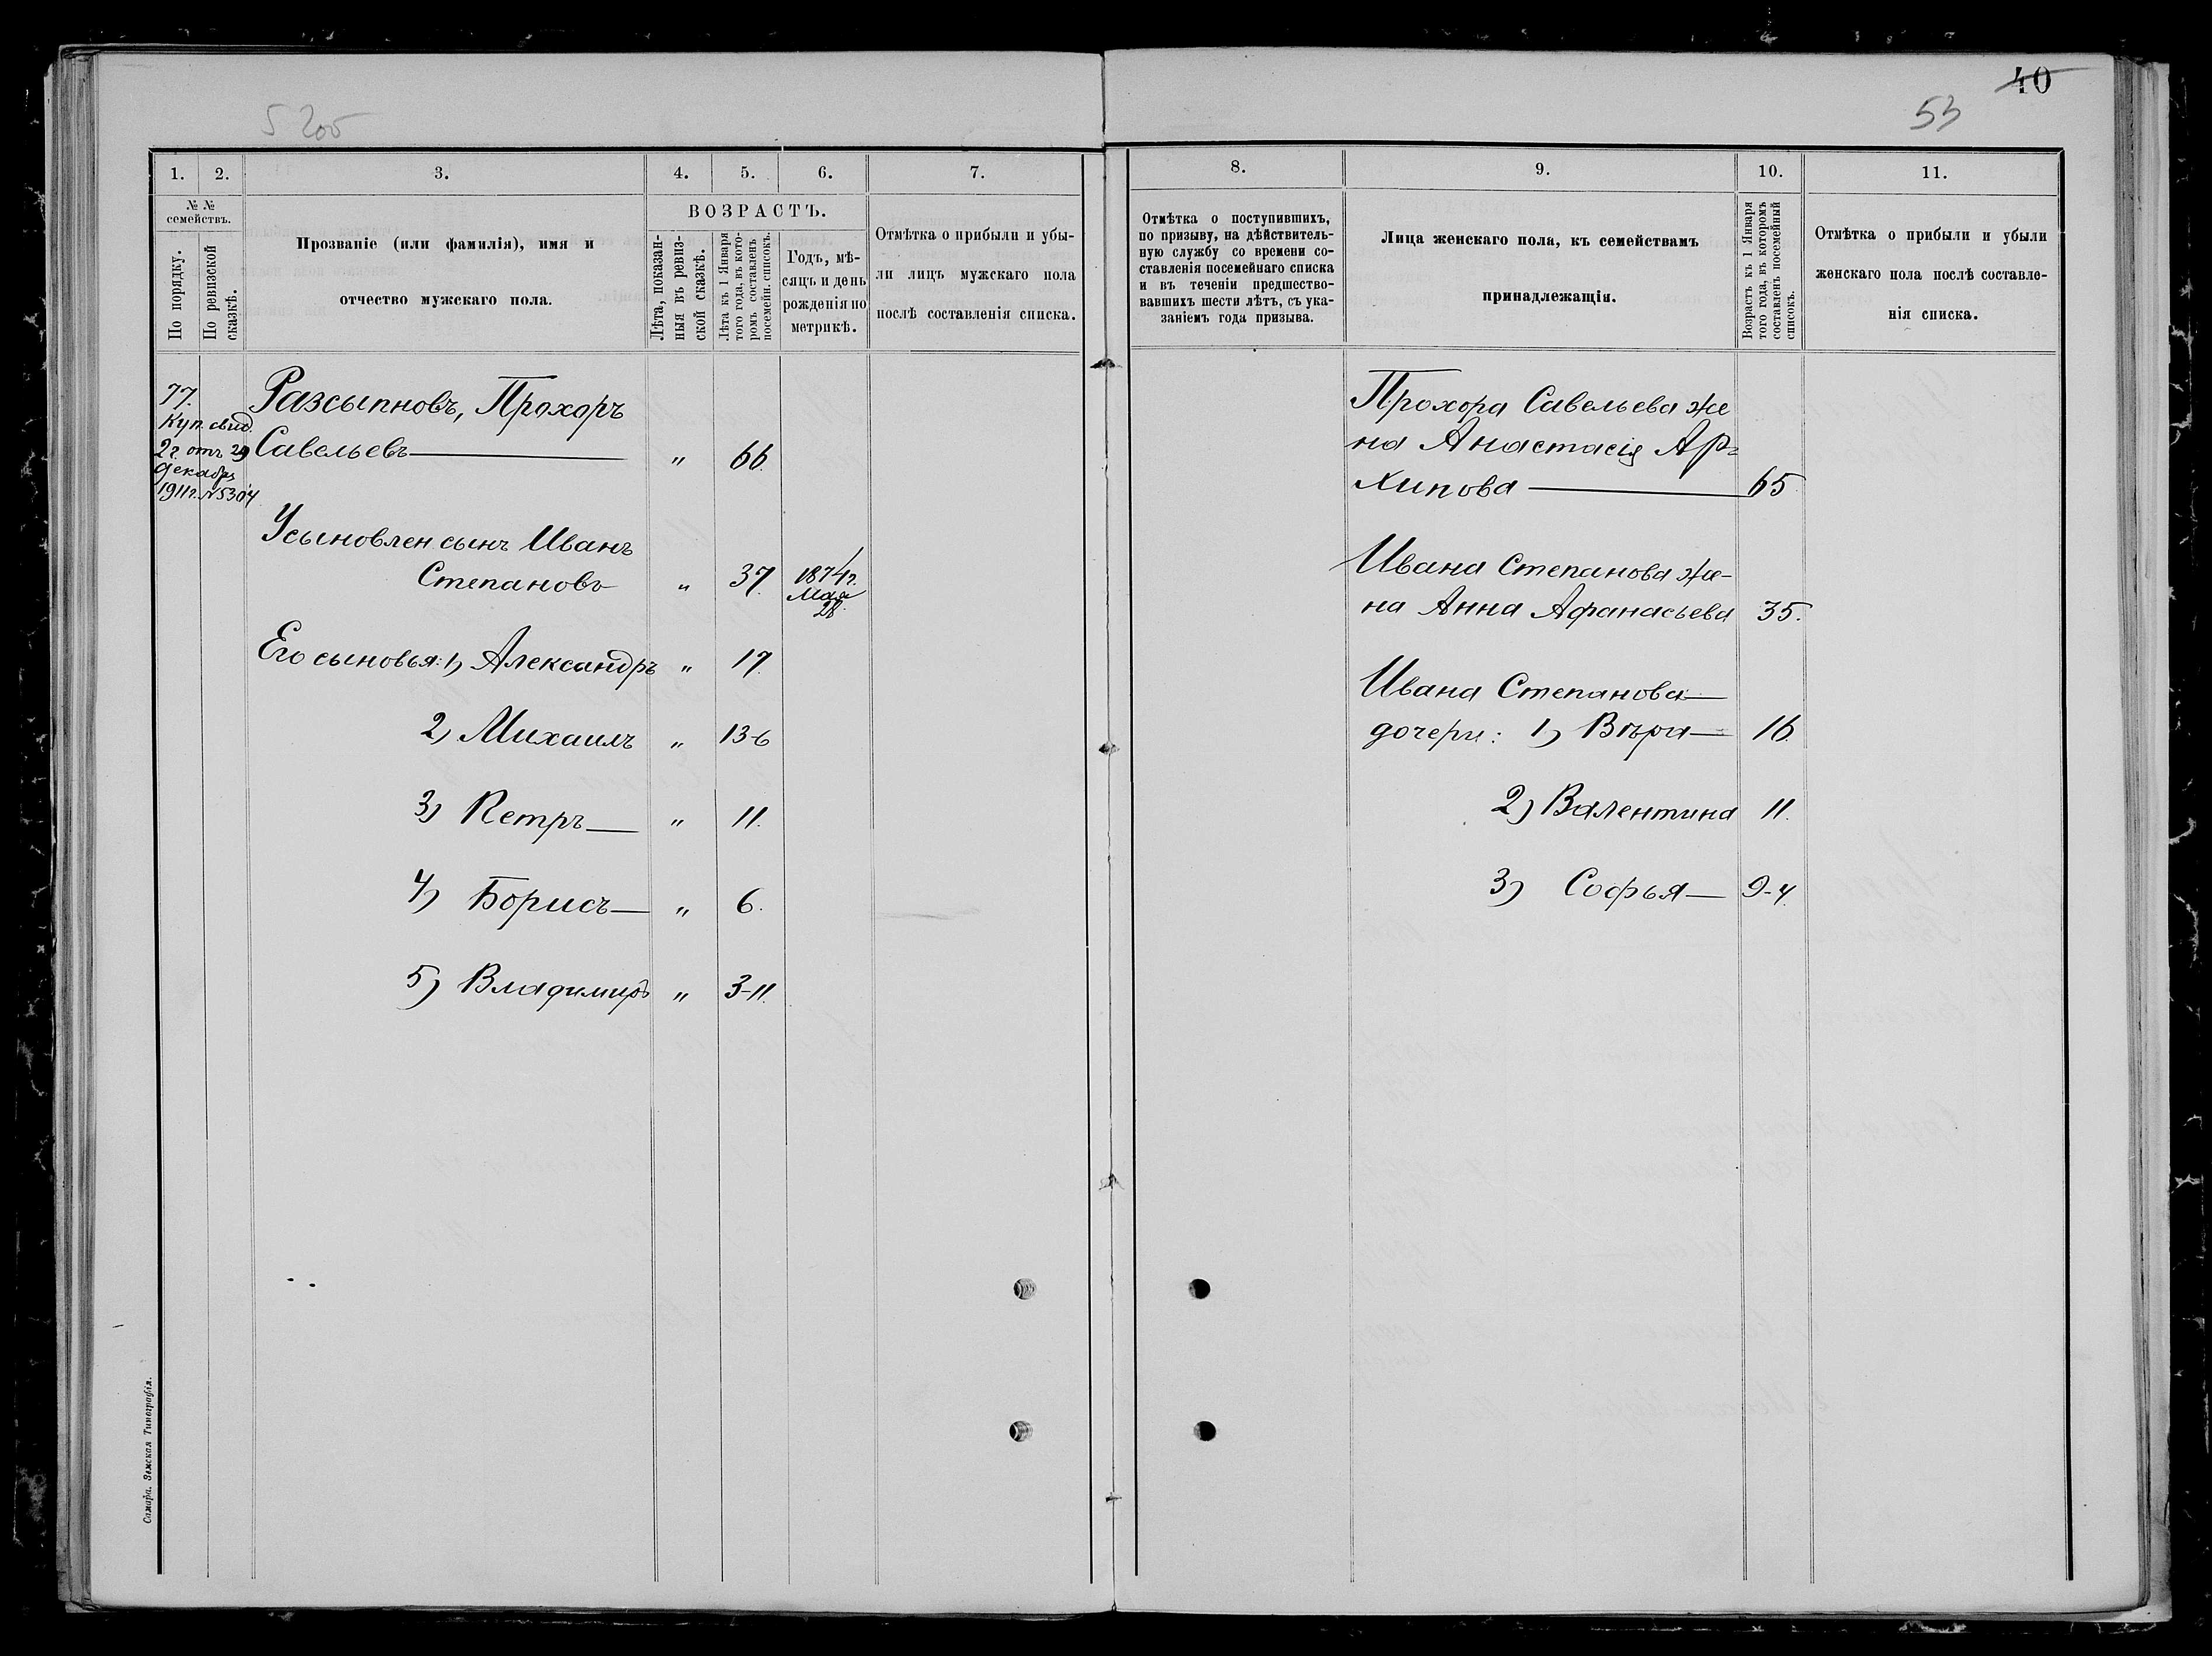 5 205
40
53
1.
2.
3.
4.
5.
6.
7.
8.
9.
10.
11.
№ №
семействъ.
По порядку.
По ревизской
сказкѣ.
Прозваніе (или фамилія), имя и
отчество мужскаго пола.
ВОЗРАСТЪ.
Лѣта, показан-
ныя въ ревиз-
ской сказкѣ.
Лѣта къ 1 Января
того года, въ кото-
ромъ составленъ
посемейн. списокъ.
Годъ, мѣ-
сяцъ и день
рожденія по
метрикѣ.
Отмѣтка о прибыли и убы-
ли лицъ мужскаго пола
послѣ составленія списка.
Отмѣтка о поступившихъ,
по призыву, на дѣйствитель-
ную службу со времени со-
ставленія посемейнаго списка
и въ теченіи предшество-
вавшихъ шести лѣтъ, съ ука-
заніемъ года призыва.
Лица женскаго пола, къ семействамъ
принадлежащія.
Возрастъ къ 1 Января
того года, въ которомъ
составленъ посемейный
списокъ.
Отмѣтка о прибыли и убыли
женскаго пола послѣ составле-
нія списка.
77.
Куп. свид.
2 г. отъ 29
Декабря
1911 г. N 5304
Разсыпновъ, Прохоръ
Савельевъ — „ 66.
Усыновлен сынъ Иванъ
Степановъ „ 37. 1874 г.
Мая
28.
Его сыновья: 1) Александръ „ 17.
2) Михаилъ „ 13-6
3) Петръ — „ 11.
4) Борисъ — „ 6.
5) Владимиръ „ 3-11.
Прохора Савельева же
на Анастасія Ар-
хипова — 65.
Ивана Степанова же-
на Анна Афанасьева 35.
Ивана Степанова —
дочери: 1) Вѣра — 16.
2) Валентина 11.
3) Софья — 9-4.
Самара. Земская Типографія.